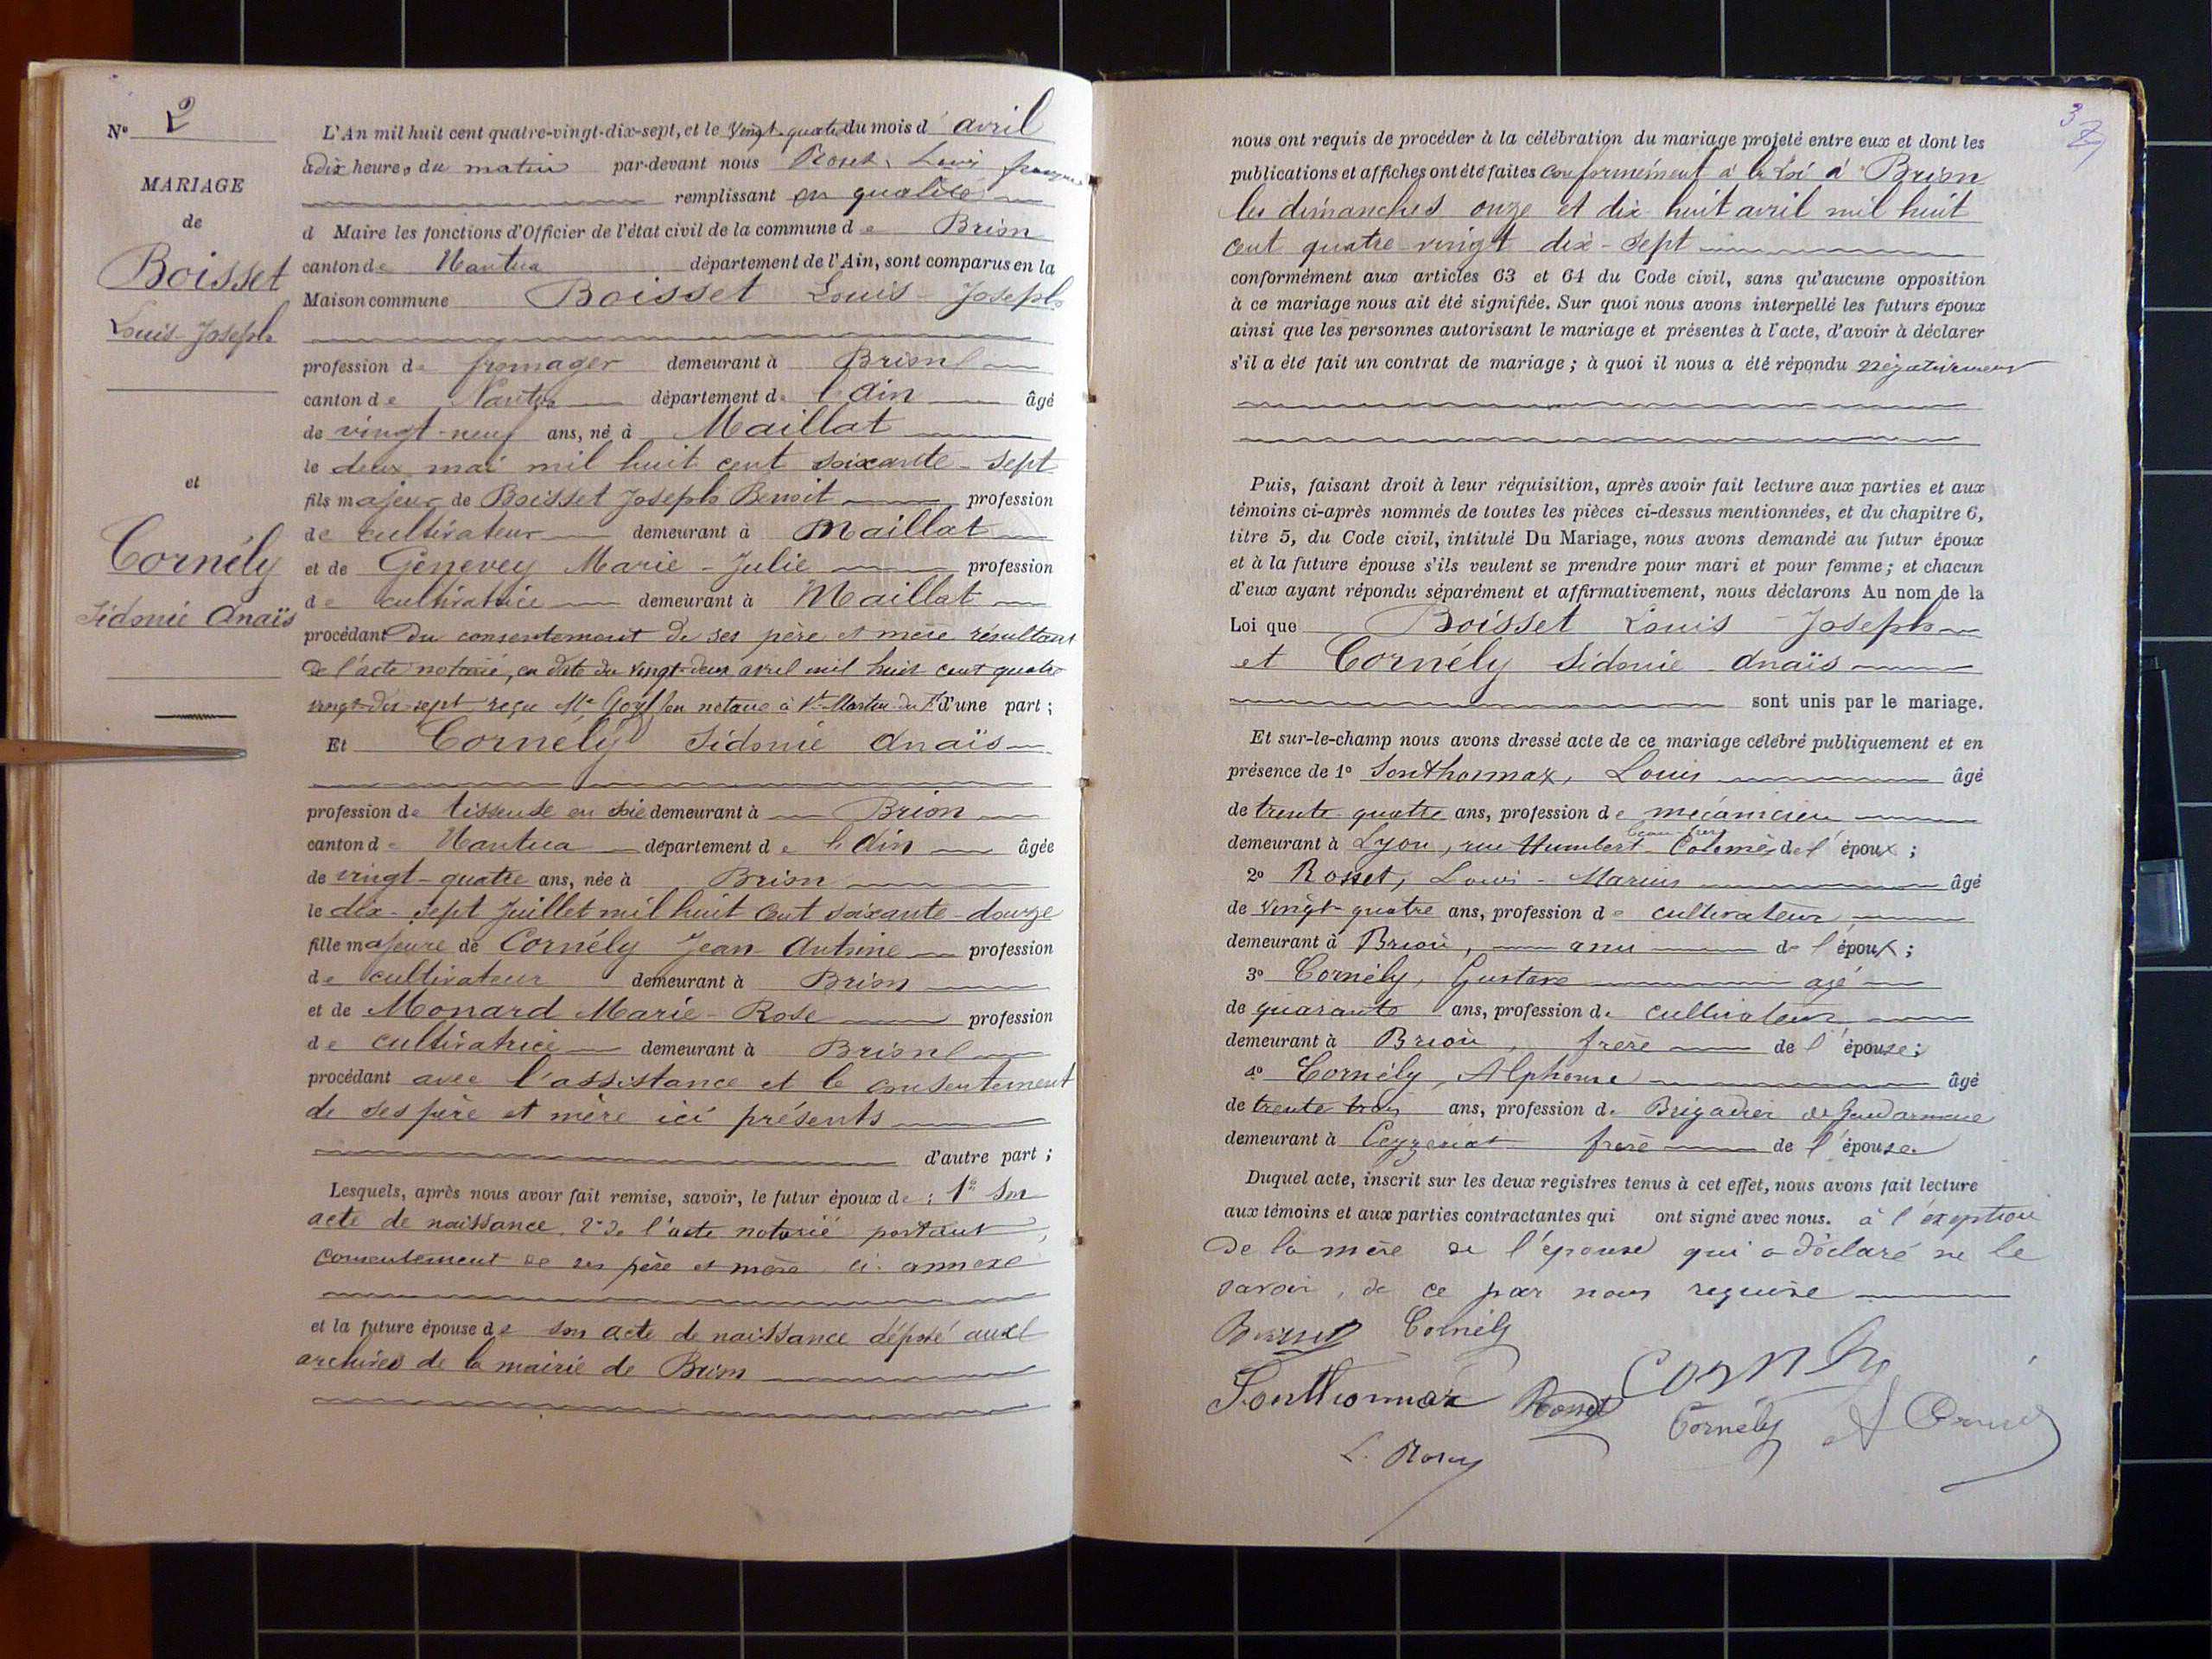 N° 2
MARIAGE
de
Boisset
Louis-Joseph
et
Cornély
Sidonie Anaïs
L'An mil huit cent quatre-vingt-dix-sept, et le vingt-quatre du mois d' avril
à dix heures du matin par-devant nous Louis
remplissant en qualité
d Maire les fonctions d'Officier de l'état civil de la commune de Brion
canton de Nantua département de l'Ain, sont comparus en la
Maison commune Boisset Louis-Joseph
profession de fromager demeurant à Brion
canton de Nantua département de l'Ain âgé
de vingt-neuf ans, né à Maillat
le deux mai mil huit cent soixante-sept
fils majeur de Boisset Joseph Benoit profession
de cultivateur demeurant à Maillat
et de Genevey Marie-Julie profession
de cultivatrice demeurant à Maillat
procédant du consentement de ses père et mère résultant
de l'acte notarié, en date du vingt-deux avril mil huit cent quatre
vingt-dix-sept reçu Me notaire à St-Martin-du-F. d'une part ;
Et Cornély Sidonie Anaïs
profession de tisseuse en soie demeurant à Brion
canton de Nantua département de l'Ain âgée
de vingt-quatre ans, née à Brion
le dix-sept juillet mil huit cent soixante-douze
fille majeure de Cornély Jean Antoine profession
de cultivateur demeurant à Brion
et de Monard Marie-Rose profession
de cultivatrice demeurant à Brion
procédant avec l'assistance et le consentement
de ses père et mère ici présents
d'autre part ;
Lesquels, après nous avoir fait remise, savoir, le futur époux de : 1° Son
acte de naissance, 2° de l'acte notarié portant
consentement de ses père et mère ci-annexé
et la future épouse de son acte de naissance déposé aux
archives de la mairie de Brion
3
nous ont requis de procéder à la célébration du mariage projeté entre eux et dont les
publications et affiches ont été faites conformément à la Loi à Brion
les dimanches onze et dix-huit avril mil huit
cent quatre-vingt dix-sept
conformément aux articles 63 et 64 du Code civil, sans qu'aucune opposition
à ce mariage nous ait été signifiée. Sur quoi nous avons interpellé les futurs époux
ainsi que les personnes autorisant le mariage et présentes à l'acte, d'avoir à déclarer
s'il a été fait un contrat de mariage ; à quoi il nous a été répondu négativement
Puis, faisant droit à leur réquisition, après avoir fait lecture aux parties et aux
témoins ci-après nommés de toutes les pièces ci-dessus mentionnées, et du chapitre 6,
titre 5, du Code civil, intitulé Du Mariage, nous avons demandé au futur époux
et à la future épouse s'ils veulent se prendre pour mari et pour femme ; et chacun
d'eux ayant répondu séparément et affirmativement, nous déclarons Au nom de la
Loi que Boisset Louis-Joseph
et Cornély Sidonie Anaïs
sont unis par le mariage.
Et sur-le-champ nous avons dressé acte de ce mariage célébré publiquement et en
présence de 1° Sonthonnax, Louis âgé
de trente quatre ans, profession de mécanicien
beau-frère
demeurant à Lyon, rue Humbert-Colomès de l'époux ;
2° Rosset, Louis-Marius âgé
de vingt-quatre ans, profession de cultivateur
demeurant à Brion, ami de l'époux ;
3° Cornély, Gustave agé
de quarante ans, profession de cultivateur
demeurant à Brion, frère de l'épouse ;
4° Cornély, Alphonse âgé
de trente trois ans, profession de Brigadier de Gendarmerie
demeurant à Ceyzeriat frère de l'épouse
Duquel acte, inscrit sur les deux registres tenus à cet effet, nous avons fait lecture
aux témoins et aux parties contractantes qui ont signé avec nous. à l'exeption
de la mère de l'épouse qui a déclaré ne le
savoir, de ce par nous requise
Boisset Cornély
Cornély
Sonthonnax Rosset Cornély